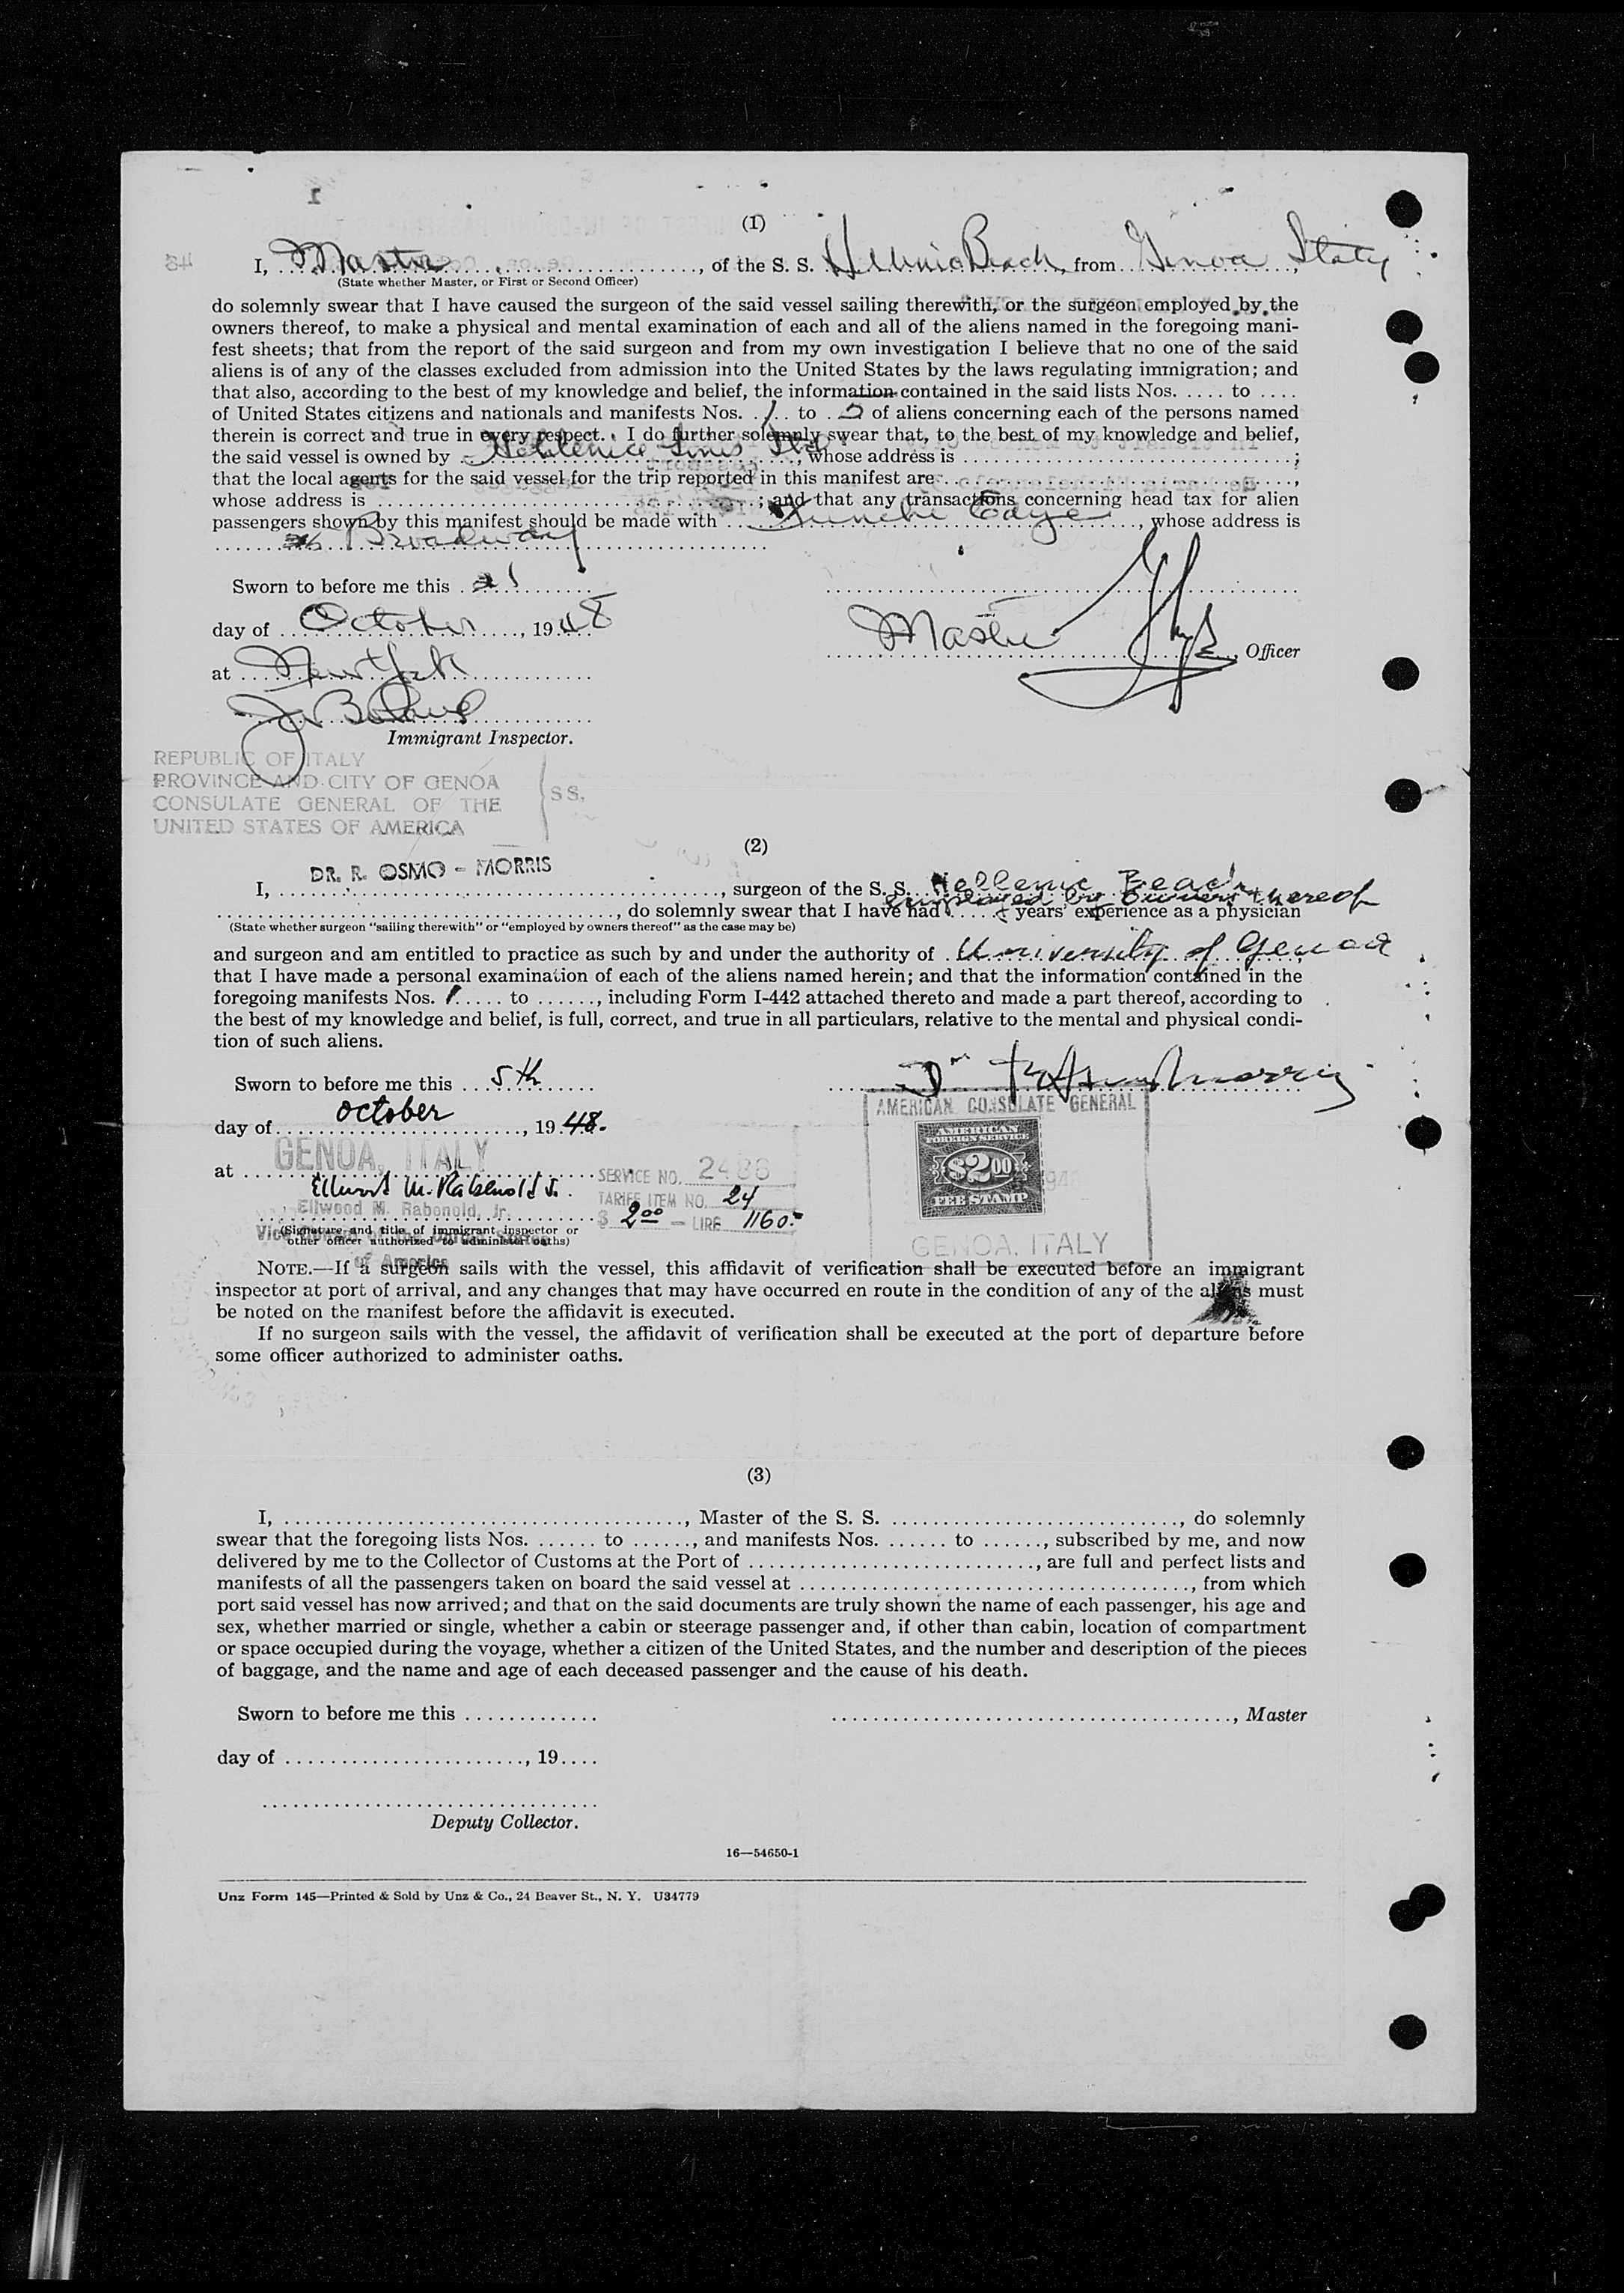 (1)
I, Master, of the S. S. Hellenic Beach, from Genoa Italy,
(State whether Master, or First or Second Officer)
do solemnly swear that I have caused the surgeon of the said vessel sailing therewith, or the surgeon employed by the
owners thereof, to make a physical and mental examination of each and all of the aliens named in the foregoing mani-
fest sheets; that from the report of the said surgeon and from my own investigation I believe that no one of the said
aliens is of any of the classes excluded from admission into the United States by the laws regulating immigration; and
that also, according to the best of my knowledge and belief, the information contained in the said lists Nos. .... to ....
of United States citizens and nationals and manifests Nos. 1 to 5 of aliens concerning each of the persons named
therein is correct and true in every respect. I do further solemnly swear that, to the best of my knowledge and belief,
the said vessel is owned by Lines Ltd, whose address is ....................;
that the local agents for the said vessel for the trip reported in this manifest are ....................,
whose address is ....................; and that any transactions concerning head tax for alien
passengers shown by this manifest should be made with Funch Edye, whose address is
Broadway
Sworn to before me this 21
day of October, 1948
at New York
Master, Officer
Immigrant Inspector.
REPUBLIC OF ITALY
PROVINCE AND CITY OF GENOA
CONSULATE GENERAL OF THE
UNITED STATES OF AMERICA
SS,
(2)
I, DR. R. OSMO - MORRIS, surgeon of the S. S. Hellenic Beach
employed by owners thereof
...................., do solemnly swear that I have had .... years' experience as a physician
(State whether surgeon "sailing therewith" or "employed by owners thereof" as the case may be)
and surgeon and am entitled to practice as such by and under the authority of University of Genoa,
that I have made a personal examination of each of the aliens named herein; and that the information contained in the
foregoing manifests Nos. 1 ..... to ......, including Form I-442 attached thereto and made a part thereof, according to
the best of my knowledge and belief, is full, correct, and true in all particulars, relative to the mental and physical condi-
tion of such aliens.
Sworn to before me this 5th
day of october, 1948.
at GENOA, ITALY
Ellwood M. Rabenold Jr.
Ellwood M. Rabenold, Jr.
Vice Consul of the United States
of America
(Signature and title of immigrant inspector or
other officer authorized to administer oaths)
SERVICE NO. 2486
TARIFF ITEM NO. 24
$ 2.00 — LIRE 1160.-
AMERICAN CONSULATE GENERAL
AMERICAN
FOREIGN SERVICE
$2.00
FEE STAMP
GENOA, ITALY
NOTE.—If a surgeon sails with the vessel, this affidavit of verification shall be executed before an immigrant
inspector at port of arrival, and any changes that may have occurred en route in the condition of any of the aliens must
be noted on the manifest before the affidavit is executed.
If no surgeon sails with the vessel, the affidavit of verification shall be executed at the port of departure before
some officer authorized to administer oaths.
(3)
I, ...................................., Master of the S. S. ............................, do solemnly
swear that the foregoing lists Nos. ...... to ......, and manifests Nos. ...... to ......, subscribed by me, and now
delivered by me to the Collector of Customs at the Port of ............................, are full and perfect lists and
manifests of all the passengers taken on board the said vessel at ...................................., from which
port said vessel has now arrived; and that on the said documents are truly shown the name of each passenger, his age and
sex, whether married or single, whether a cabin or steerage passenger and, if other than cabin, location of compartment
or space occupied during the voyage, whether a citizen of the United States, and the number and description of the pieces
of baggage, and the name and age of each deceased passenger and the cause of his death.
Sworn to before me this .............
....................................., Master
day of ......................, 19....
Deputy Collector.
16—54650-1
Unz Form 145—Printed & Sold by Unz & Co., 24 Beaver St., N. Y. U34779